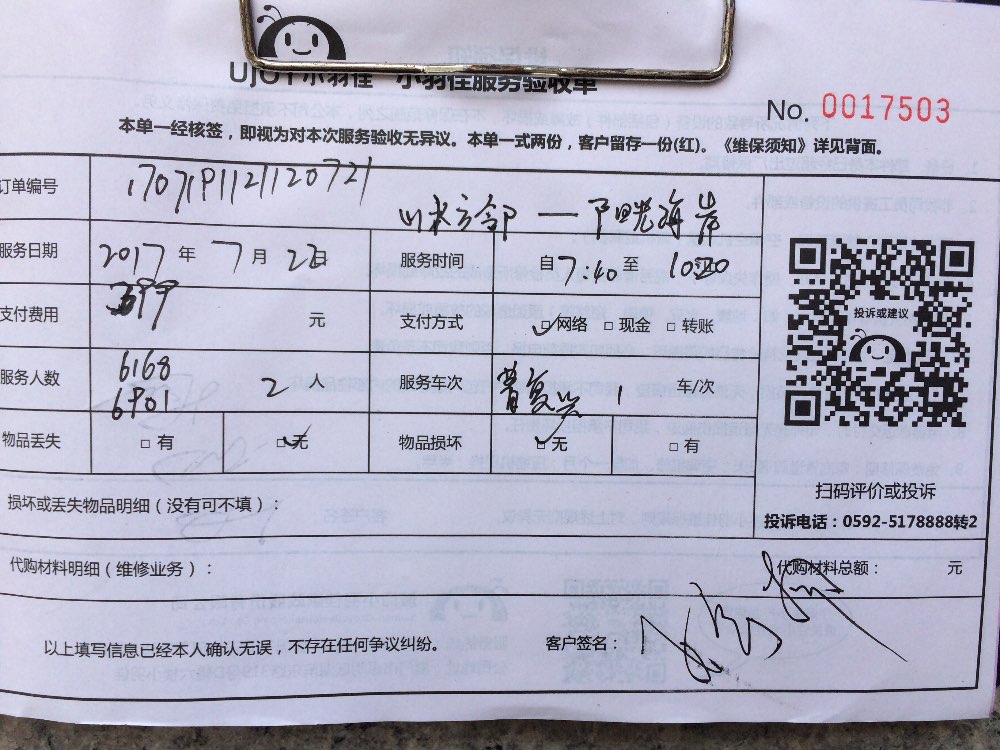 UJOY小羽佳 小羽佳服务验收单
No. 0017503
本单一经核签，即视为对本次服务验收无异议。本单一式两份，客户留存一份(红)。《维保须知》详见背面。
订单编号
山水芳邻 — 阳光海岸
服务日期 2017 年 7 月 2日 服务时间 自7:40至
支付费用 元 支付方式 ☑网络 □现金 □转账
服务人数 6168 6901 2 服务车次 曾复兴 1 车/次
物品丢失 □有 ☑无 物品损坏 ☑无 □有
损坏或丢失物品明细（没有可不填）：
代购材料明细（维修业务）： 代购材料总额： 元
以上填写信息已经本人确认无误，不存在任何争议纠纷。 客户签名：
投诉或建议
扫码评价或投诉
投诉电话：0592-5178888转2